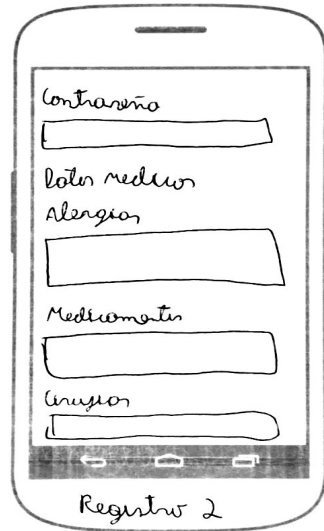 Contraseña
Datos medicos
Alergias
Medicamentos
Cirugias
Registro 2